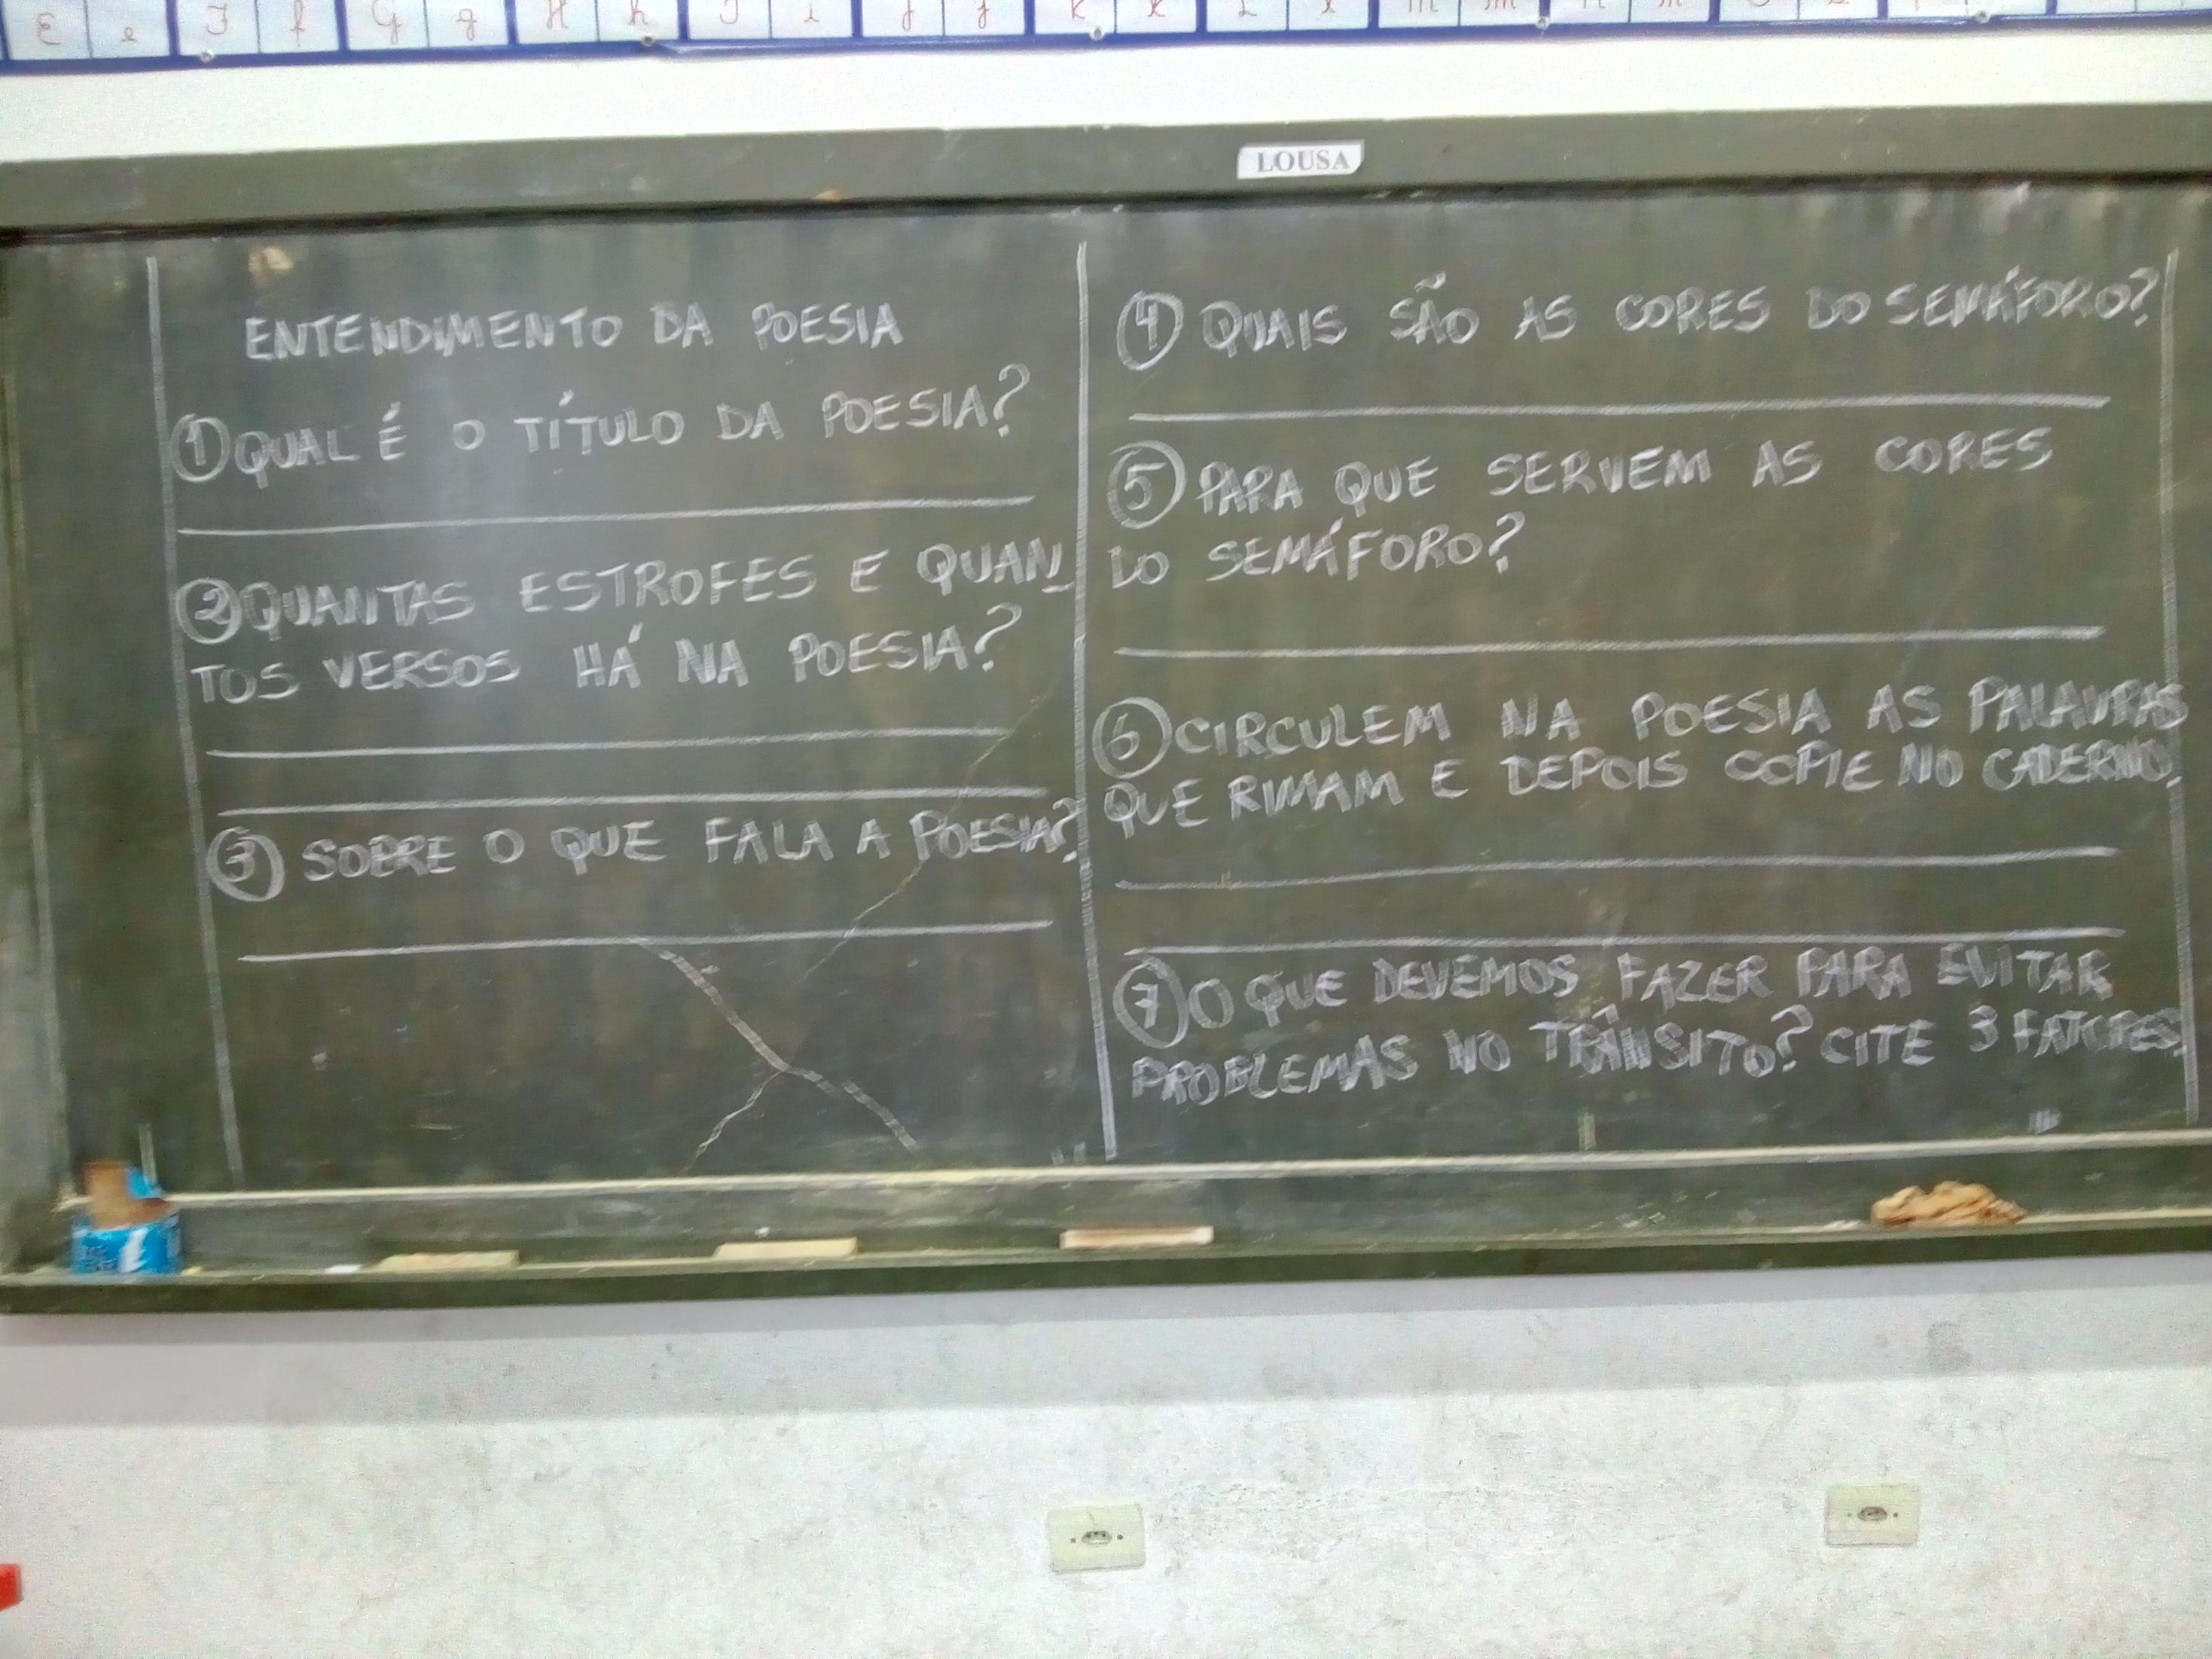 E e F f G g H h I i J j K k L l M m N n
LOUSA
ENTENDIMENTO DA POESIA
1 QUAL É O TÍTULO DA POESIA?
2 QUANTAS ESTROFES E QUAN_
TOS VERSOS HÁ NA POESIA?
3 SOBRE O QUE FALA A POESIA?
4 QUAIS SÃO AS CORES DO SEMÁFORO?
5 PARA QUE SERVEM AS CORES
DO SEMÁFORO?
6 CIRCULEM NA POESIA AS PALAVRAS
QUE RIMAM E DEPOIS COPIE NO CADERNO.
7 O QUE DEVEMOS FAZER PARA EVITAR
PROBLEMAS NO TRÂNSITO? CITE 3 FATORES.